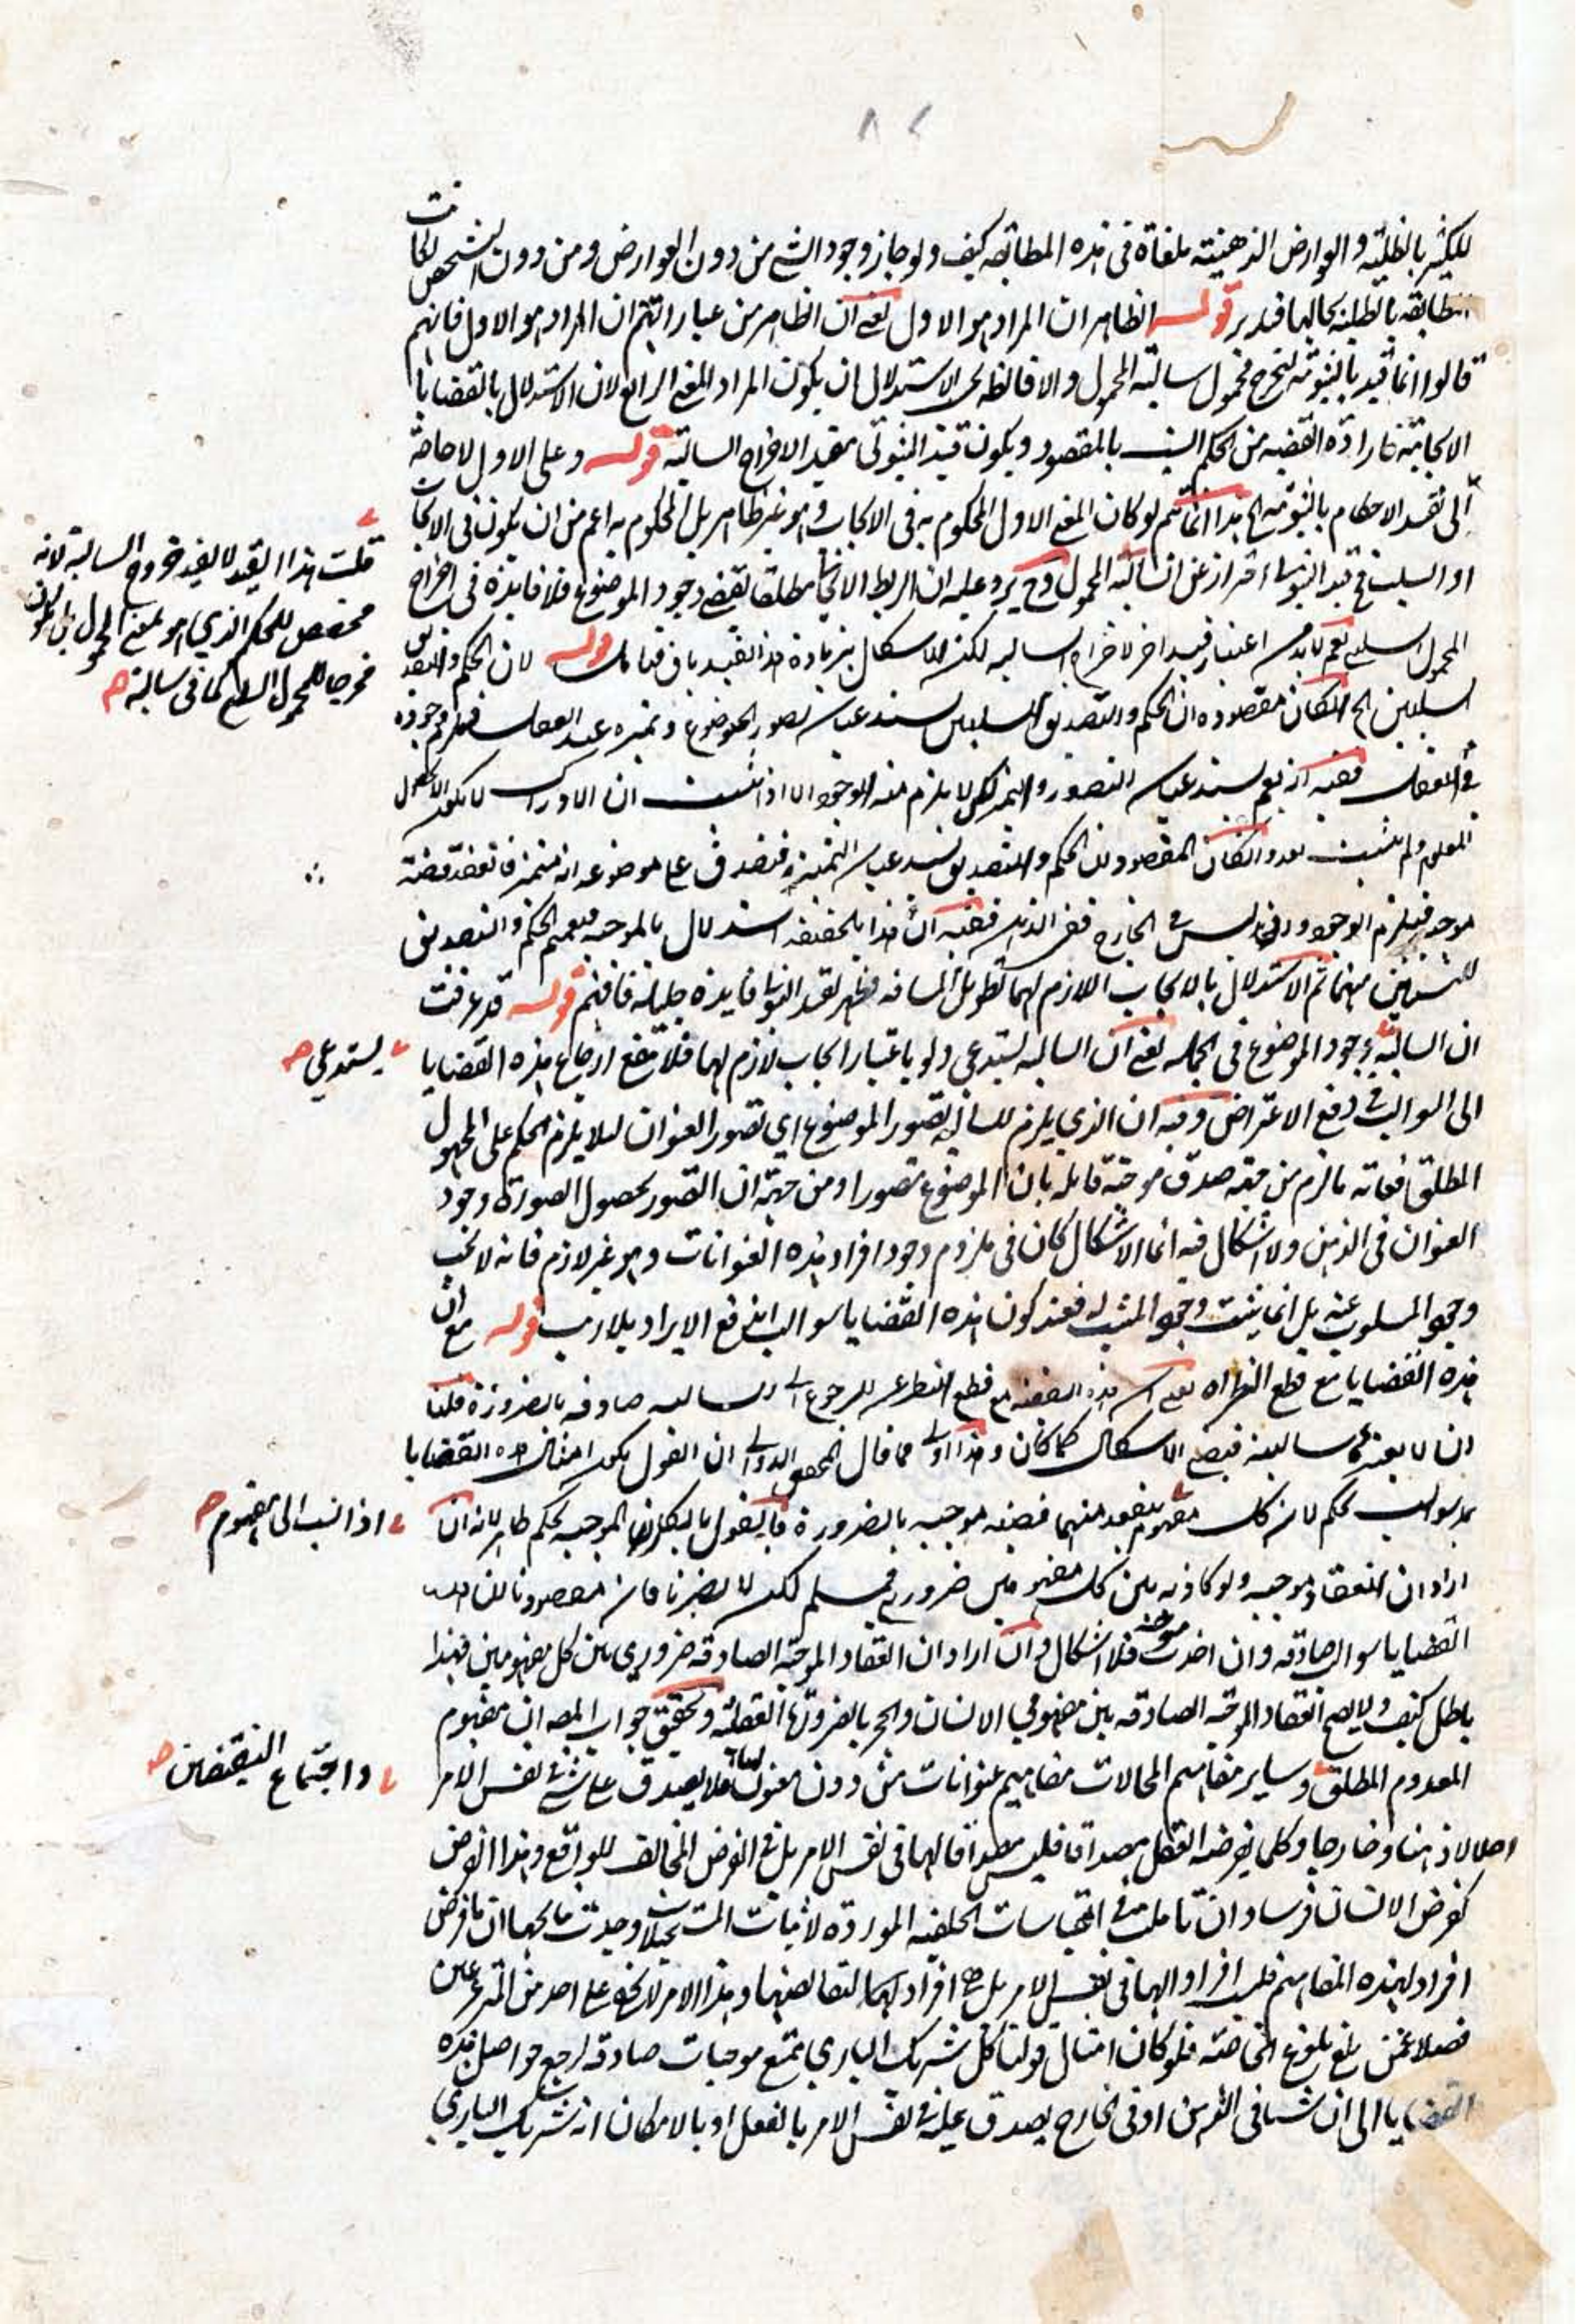 للكثير بالظلية والعوارض الذهنية ملغاة فى هذه المطابقه كيف ولو جاز وجود الشئ من دون العوارض ومن دون التشخص لكانت
المطابقه بالظلية بحالها فتدبر قوله الظاهر ان المراد هو الاول يعنى ان الظاهر من عباراتهم ان المراد هو الاول فانهم
قالوا انما قيد بالثبوتيه ليخرج محمول سالبة المحمول والا فالظ الاستدلال ان يكون المراد المعنى الرابع لان الاستدلال بالقضايا
الايجابية فارادة القضيه من الحكم انسب بالمقصود ويكون قيد الثبوتى مفيد الاخراج السالبة قوله وعلى الاول لا حاجة
الى تقييد الاحكام بالثبوتيه الخ هذا انما يتم لو كان المعنى الاول المحكوم به فى الايجاب وهو غير ظاهر بل المحكوم به اعم من ان يكون فى الايجاب
او السلب فح قيد الثبوتى احتراز عن السالبة المحمول وح يرد عليه ان الربط الايجابى مطلقا يقتضى وجود الموضوع فلا فايدة فى اخراج
المحمول السلبى نعم لابد من اعتبار قيد اخر لاخراج السالبه لكن الاشكال بزيادة هذا القيد باق فتامل قوله لان الحكم والتصديق
السلبيين الخ ان كان مقصوده ان الحكم والتصديق السلبيين يستدعيان تصور الموضوع وتميزه عند العقل فيلزم وجوده
فى العقل ففيه انه نعم يستدعيان التصور والتميز لكن لا يلزم منه الوجود الا اذا ثبت ان الادراك لا يكون الا بحصول
المعلوم ولم يثبت بعد وان كان المقصود ان الحكم والتصديق يستدعيان التميز فتصدق على موضوعه انه متميز فانعقد قضية
موجبه فيلزم الوجود واذ ليس فى الخارج ففى الذهن ففيه ان هذا بالحقيقه استدلال بالموجبه فتعميم الحكم والتصديق
للسلبيين منهما ثم الاستدلال بالايجاب اللازم لهما تطويل المسافه فظهر لقيد الثبوتى فايدة جليلة فافهم قوله قد عرفت
ان السالبة وجود الموضوع فى الجمله يعنى ان السالبه تستدعى ولو باعتبار ايجاب لازم لها فلا ينفع ارجاع هذه القضايا
الى السوالب فى دفع الاعتراض وفيه ان الذى يلزم للسالبه تصور الموضوع اى تصور العنوان ليلا يلزم الحكم على المجهول
المطلق فغاته ما لزم من حقيه صدق موجبة قايله بان الموضوع متصور او من جهة ان التصور بحصول الصورة وجود
العنوان فى الذهن ولا اشكال فيه انما الاشكال كان فى لزوم وجود افراد هذه العنوانات وهو غير لازم فانه لا يجب
وجود المسلوب عنه بل انما يثبت وجود المثبت له فعند كون هذه القضايا سوالب اندفع الايراد بلا ريب قوله مع ان
هذه القضايا مع قطع النظر اه يعنى ان هذه القضيه مع قطع النظر عن الرجوع الى السالبه صادقه بالضرورة قلنا
ان لا يعتبر سالبيه فيصح الاشكال كما كان وهذا اولى مما قال المحقق الدوانى ان القول بكون امثال هذه القضايا
سوالب تحكم لان كل مفهوم ينعقد منهما قضيه موجبه بالضرورة فالقول بانكار الموجبه تحكم ظاهر لانه ان
اراد ان انعقاد موجبه ولو كاذبه بين كل مفهومين ضرورى فمسلم لكن لا يضرنا فان مقصودنا ان هذه
القضايا سوالب صادقه وان اخذت موجبه فلا اشكال وان اراد ان انعقاد الموجبة الصادقه ضرورى بين كل مفهومين فهذا
باطل كيف ولا يصح انعقاد الموجبة الصادقه بين مفهومى الانسان والحجر بالضرورة العقلية وتحقيق جواب المصه ان مفهوم
المعدوم المطلق وساير مفاهيم المحالات مفاهيم عنوانات من دون معنون لها فلا يصدق على شئ فى نفس الامر
اصلا لا ذهنا ولا خارجا وكلما يفرضه العقل مصداقا فليس مصداقا لها فى نفس الامر بل فى الفرض المخالف للواقع وهذا الفرض
كفرض الانسان فرسا وان تاملت فى القياسات الخلفيه الموردة لاثبات المستحيلات وجدت مالها ان ما فرض
افراد لهذه المفاهيم فليس افرادا لها فى نفس الامر بل هى افراد لها لنقايضها وهذا الامر لا يخفى على احد من المترعرعين
فضلا عمن بلغ بلوغ الخاصة فلو كان امثال قولنا كل شريك البارى ممتنع موجبات صادقه لرجع حواصل هذه
القضايا الى ان شيئا فى الذهن او فى الخارج يصدق عليه فى نفس الامر بالفعل او بالامكان انه شريك البارى
قلت هذا القيد لا يفيد خروج السالبة لانه
مخصص للحكم الذى هو لمعنى المحمول بان يكون
مخرجا للمحمول السلبى كما فى سالبة صح
يستدعى صح
اذا نسب الى مفهوم صح
واجتماع النقيضين صح